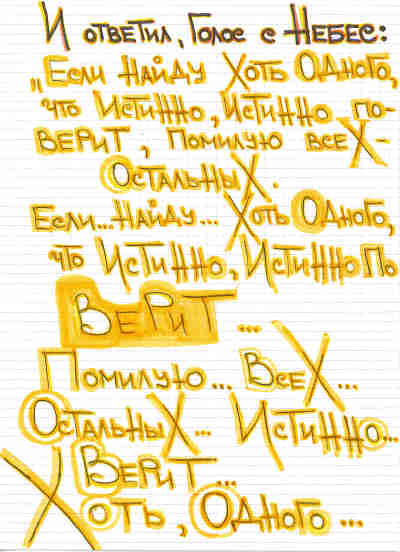 И ответил, Голос с Небес:
„Если Найду Хоть Одного,
что Истинно, Истинно по-
верит, помилую всех-
Остальных.
Если... Найду... Хоть Одного,
что Истинно, Истинно По
Верит ...
Помилую... Всех...
Остальных... Истинно...
Верит...
Хоть, Одного...